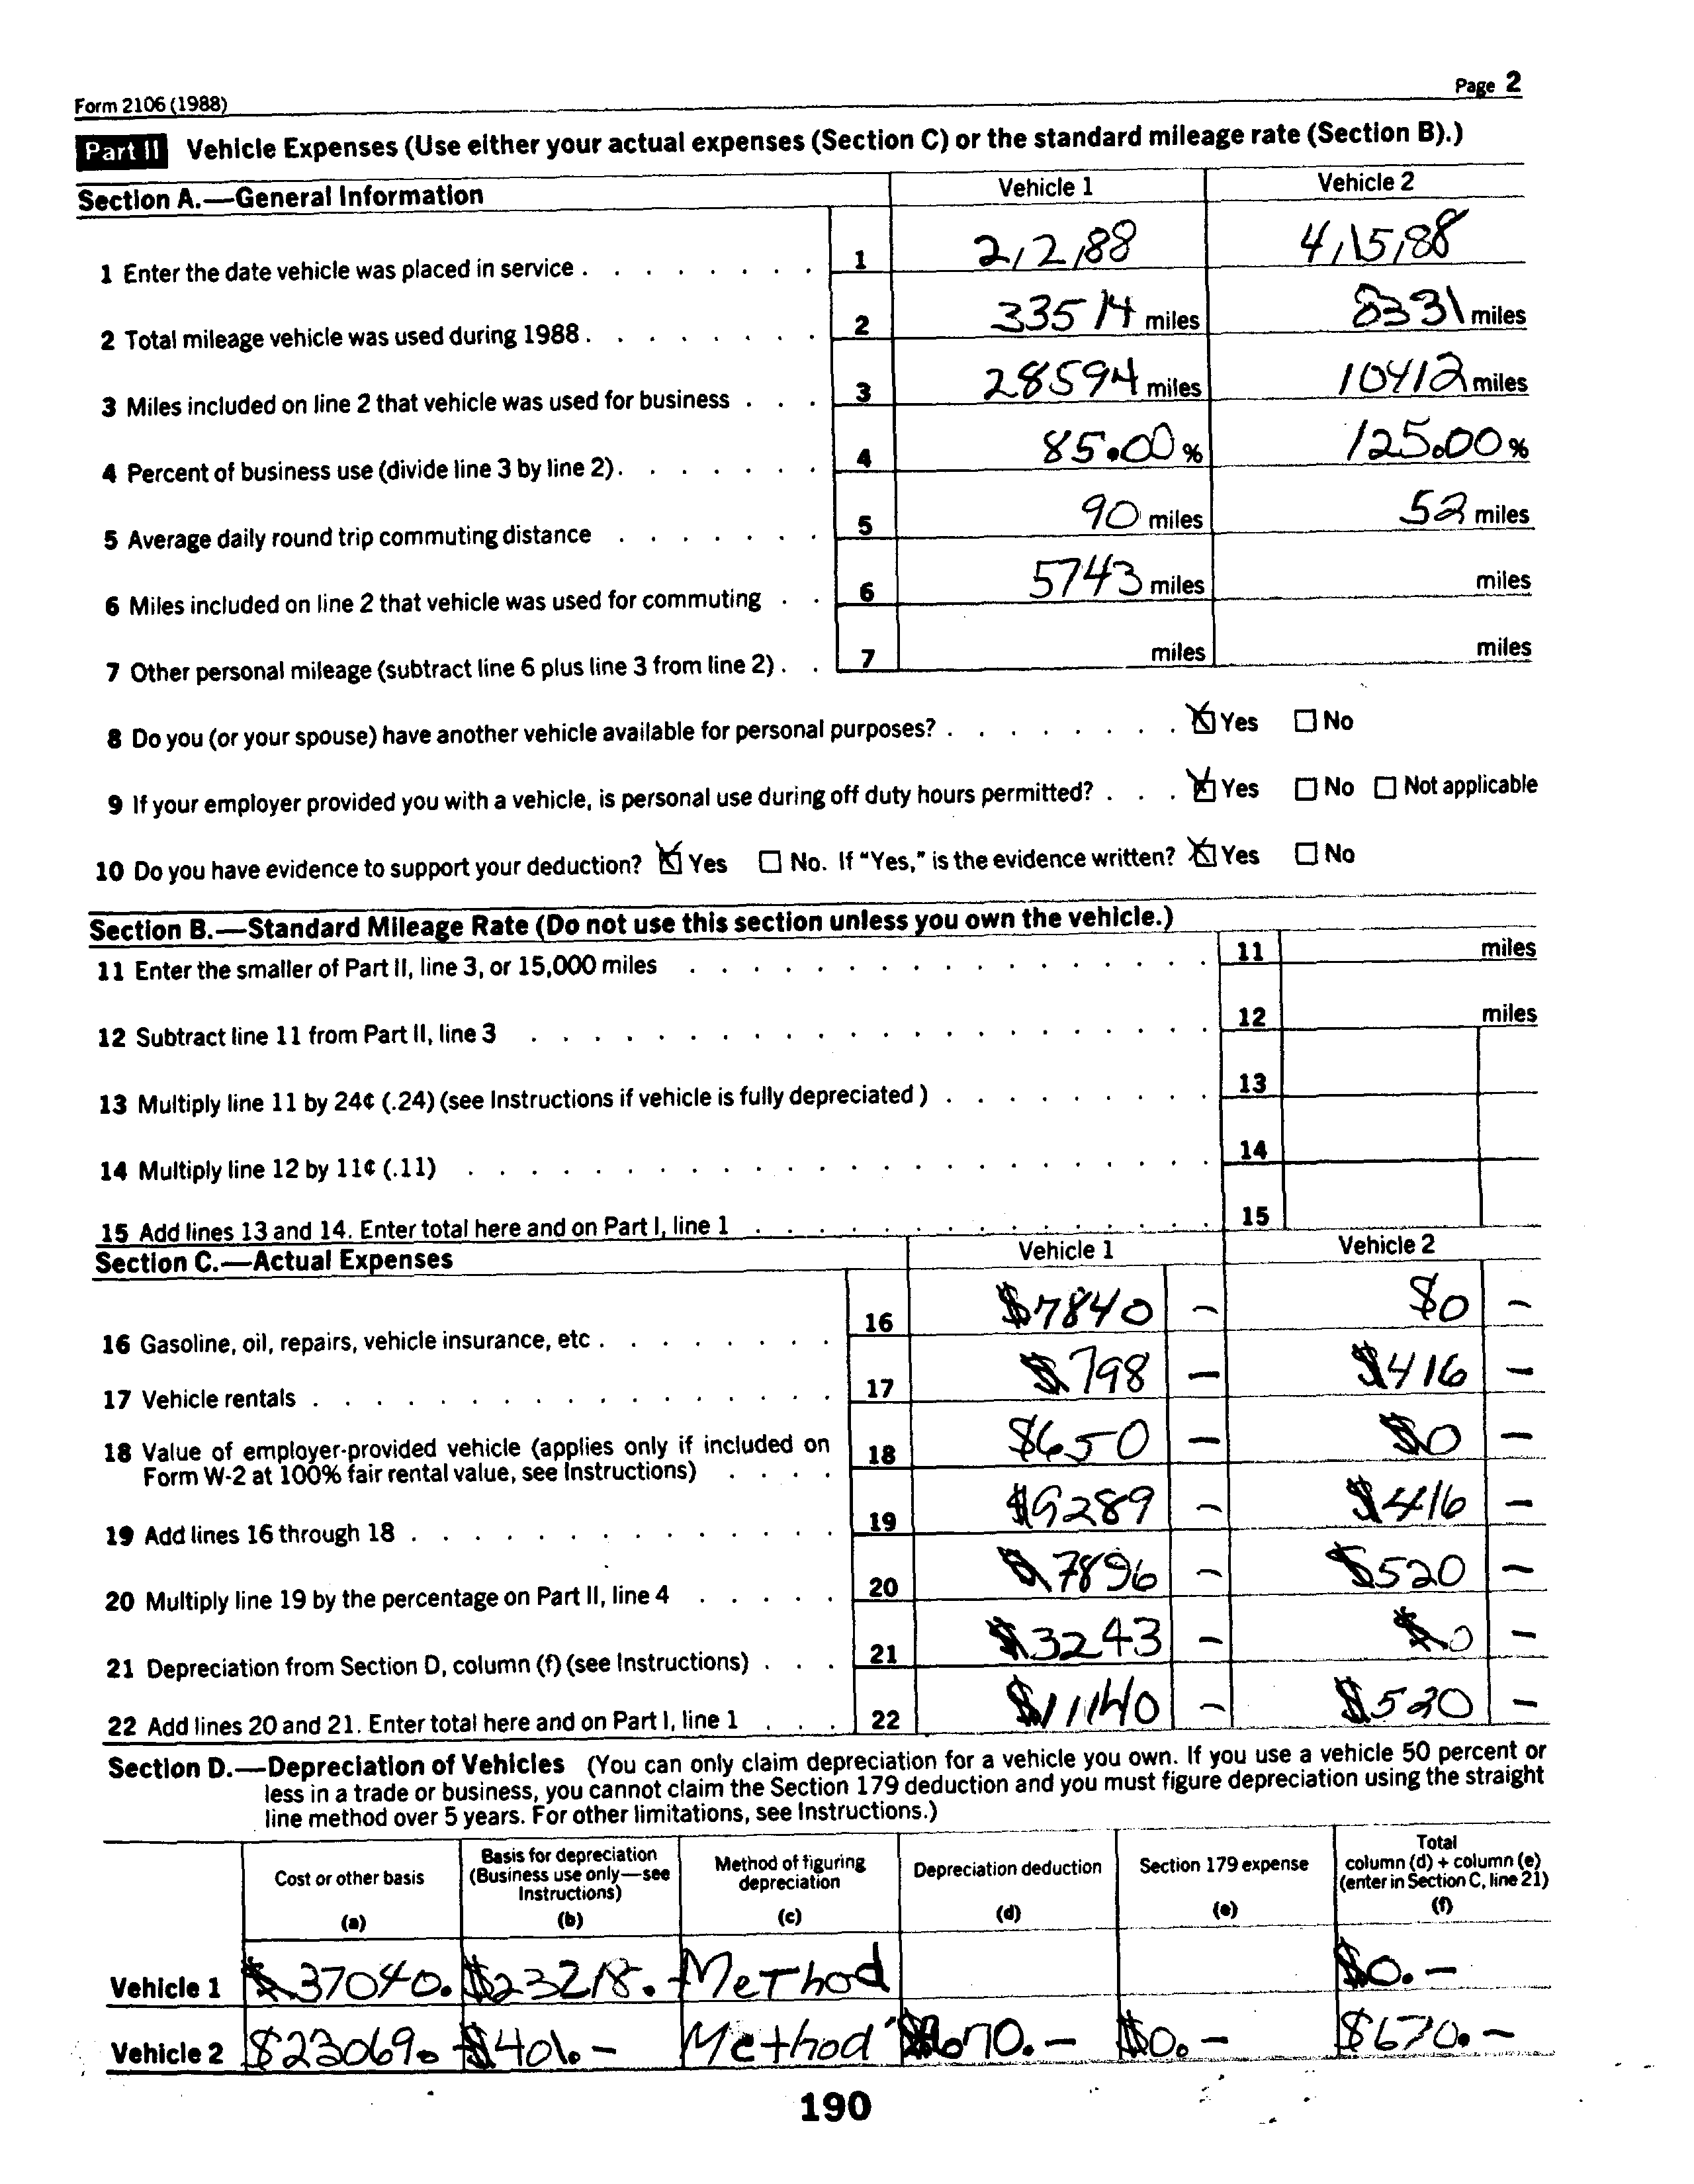 Form 2106 (1988) Page 2
Part II Vehicle Expenses (Use either your actual expenses (Section C) or the standard mileage rate (Section B).)
Section A.—General Information Vehicle 1 Vehicle 2
1 Enter the date vehicle was placed in service . . . . . . . . 1 2/2/88 4/15/88
2 Total mileage vehicle was used during 1988 . . . . . . . . 2 33514 miles 8331 miles
3 Miles included on line 2 that vehicle was used for business . . . 3 28594 miles 10412 miles
4 Percent of business use (divide line 3 by line 2) . . . . . . . 4 85.00 % 125.00 %
5 Average daily round trip commuting distance . . . . . . . 5 90 miles 52 miles
6 Miles included on line 2 that vehicle was used for commuting . . 6 5743 miles miles
7 Other personal mileage (subtract line 6 plus line 3 from line 2) . . 7 miles miles
8 Do you (or your spouse) have another vehicle available for personal purposes? . . . . . . . . Yes No
9 If your employer provided you with a vehicle, is personal use during off duty hours permitted? . . . Yes No Not applicable
10 Do you have evidence to support your deduction? Yes No. If "Yes," is the evidence written? Yes No
Section B.—Standard Mileage Rate (Do not use this section unless you own the vehicle.)
11 Enter the smaller of Part II, line 3, or 15,000 miles . . . . . . . . . . . . . . . . . 11 miles
12 Subtract line 11 from Part II, line 3 . . . . . . . . . . . . . . . . . . . . . . 12 miles
13 Multiply line 11 by 24¢ (.24) (see Instructions if vehicle is fully depreciated ) . . . . . . . . . 13
14 Multiply line 12 by 11¢ (.11) . . . . . . . . . . . . . . . . . . . . . . . . 14
15 Add lines 13 and 14. Enter total here and on Part I, line 1 . . . . . . . . . . . . . . . 15
Section C.—Actual Expenses Vehicle 1 Vehicle 2
16 Gasoline, oil, repairs, vehicle insurance, etc . . . . . . . . 16 $7840 – $0 –
17 Vehicle rentals . . . . . . . . . . . . . . . . . 17 $798 – $416 –
18 Value of employer-provided vehicle (applies only if included on
Form W-2 at 100% fair rental value, see Instructions) . . . . 18 $650 – $0 –
19 Add lines 16 through 18 . . . . . . . . . . . . . . 19 $9289 – $416 –
20 Multiply line 19 by the percentage on Part II, line 4 . . . . . 20 $7896 – $520 –
21 Depreciation from Section D, column (f) (see Instructions) . . . 21 $3243 – $0 –
22 Add lines 20 and 21. Enter total here and on Part I, line 1 . . . 22 $11140 – $520 –
Section D.—Depreciation of Vehicles (You can only claim depreciation for a vehicle you own. If you use a vehicle 50 percent or
less in a trade or business, you cannot claim the Section 179 deduction and you must figure depreciation using the straight
line method over 5 years. For other limitations, see Instructions.)
Cost or other basis (a)
Basis for depreciation (Business use only—see Instructions) (b)
Method of figuring depreciation (c)
Depreciation deduction (d)
Section 179 expense (e)
Total column (d) + column (e) (enter in Section C, line 21) (f)
Vehicle 1 $37040.– $23218.– Method $0.–
Vehicle 2 $23069.– $401.– Method $670.– $0.– $670.–
190